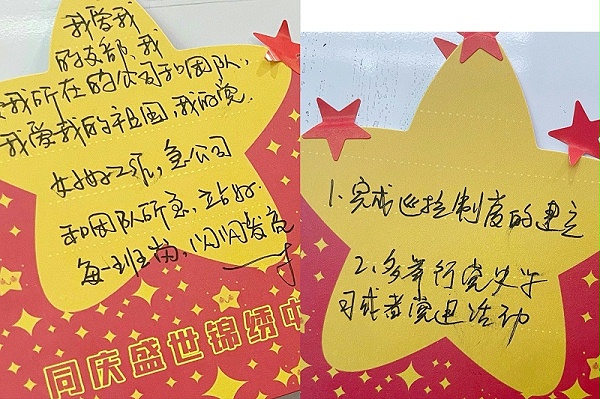 我爱我
的支部,我
爱我所在的公司和团队,
我爱我的祖国,我的党.
好好工作,急公司
和团队所急,站好
每一班岗,闪闪发亮
同庆盛世锦绣中
1、完成巡检制度的建立
2、多举行党史学
习或者党建活动